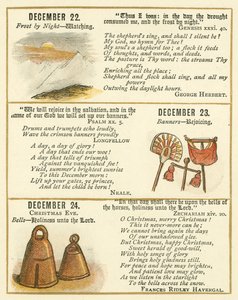 DECEMBER 22.
Frost by Night—Watching.
"Thus I was: in the day the drought
consumed me, and the frost by night."
GENESIS xxxi. 40.
The shepherd's sing, and shall I silent be?
My God, no hymn for Thee!
My soul's a shepherd too; a flock it feeds
Of thoughts, and words, and deeds.
The pasture is Thy word: the streams Thy
grace,
Enriching all the place:
Shepherd and flock shall sing, and all my
powers
Outwing the daylight hours.
GEORGE HERBERT.
"We will rejoice in thy salvation, and in the
name of our God we will set up our banners."
PSALM xx. 5.
Drums and trumpets echo loudly,
Wave the crimson banners proudly
LONGFELLOW
A day, a day of glory!
A day that ends our woe!
A day that tells of triumph
Against the vanquished foe!
Yield, summer's brightest sunrise
To this December morn:
Lift up your gates, ye princes,
And let the child be born!
NEALE.
DECEMBER 23.
Banners—Rejoicing.
DECEMBER 24.
CHRISTMAS EVE.
Bells—Holiness unto the Lord.
"In that day shall there be upon the bells of
the horses, Holiness unto the Lord.
ZECHARIAH xiv. 20
O Christmas, merry Christmas!
This is never more can be;
We cannot bring again the days
Of our unshadowed glee.
But Christmas, happy Christmas,
Sweet herald of good-will,
With holy songs of glory
Brings holy gladness still.
For peace and hope may brighten,
And patient love may glow,
As we listen in the starlight
To the bells across the snow.
FRANCES RIDLEY HAVERGAL.